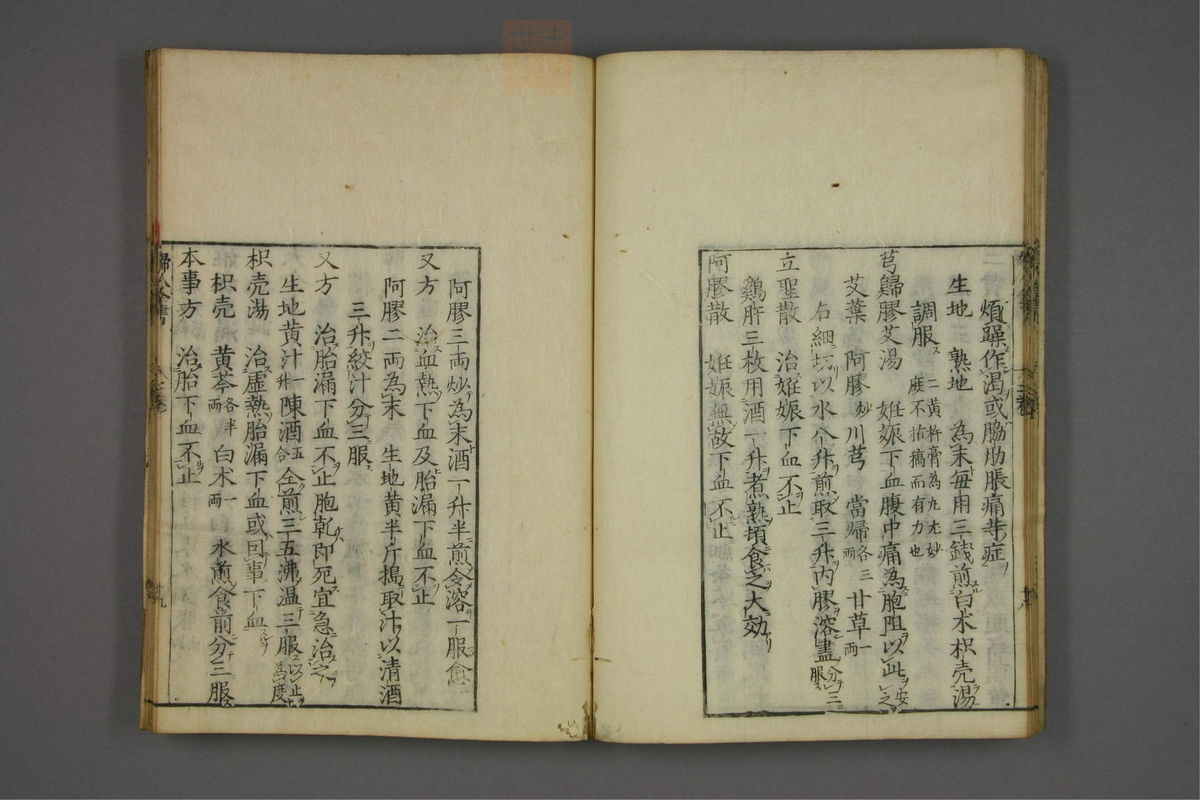 煩躁作渇或脇肋脹痛等症
生地 熟地 為末毎用三錢煎白朮枳壳湯
調服 二黄杵膏為丸尤妙
庻不拈槁而有力也
芎歸膠艾湯 妊娠下血腹中痛為胞阻以此安之
艾葉 阿膠炒 川芎 當帰各三両 甘草一両
右細㕮以水八升煎取三升内膠溶盡分三服
立聖散 治妊娠下血不止
鷄肝三枚用酒一升煮熟頓食之大効
阿膠散 妊娠無故下血不止
阿膠三両炒為末酒一升半煎令溶一服愈
又方 治血熱下血及胎漏下血不止
阿膠二両為末 生地黄半斤搗取汁以清酒
三升絞汁分三服
又方 治胎漏下血不止胞乾即死宜急治之
生地黄汁一升陳酒五合仝煎三五沸温三服以止為度
枳壳湯 治虚熱胎漏下血或囙事下血
枳壳 黄芩各半両 白朮一両 水煎食前分三服
本事方 治胎下血不止